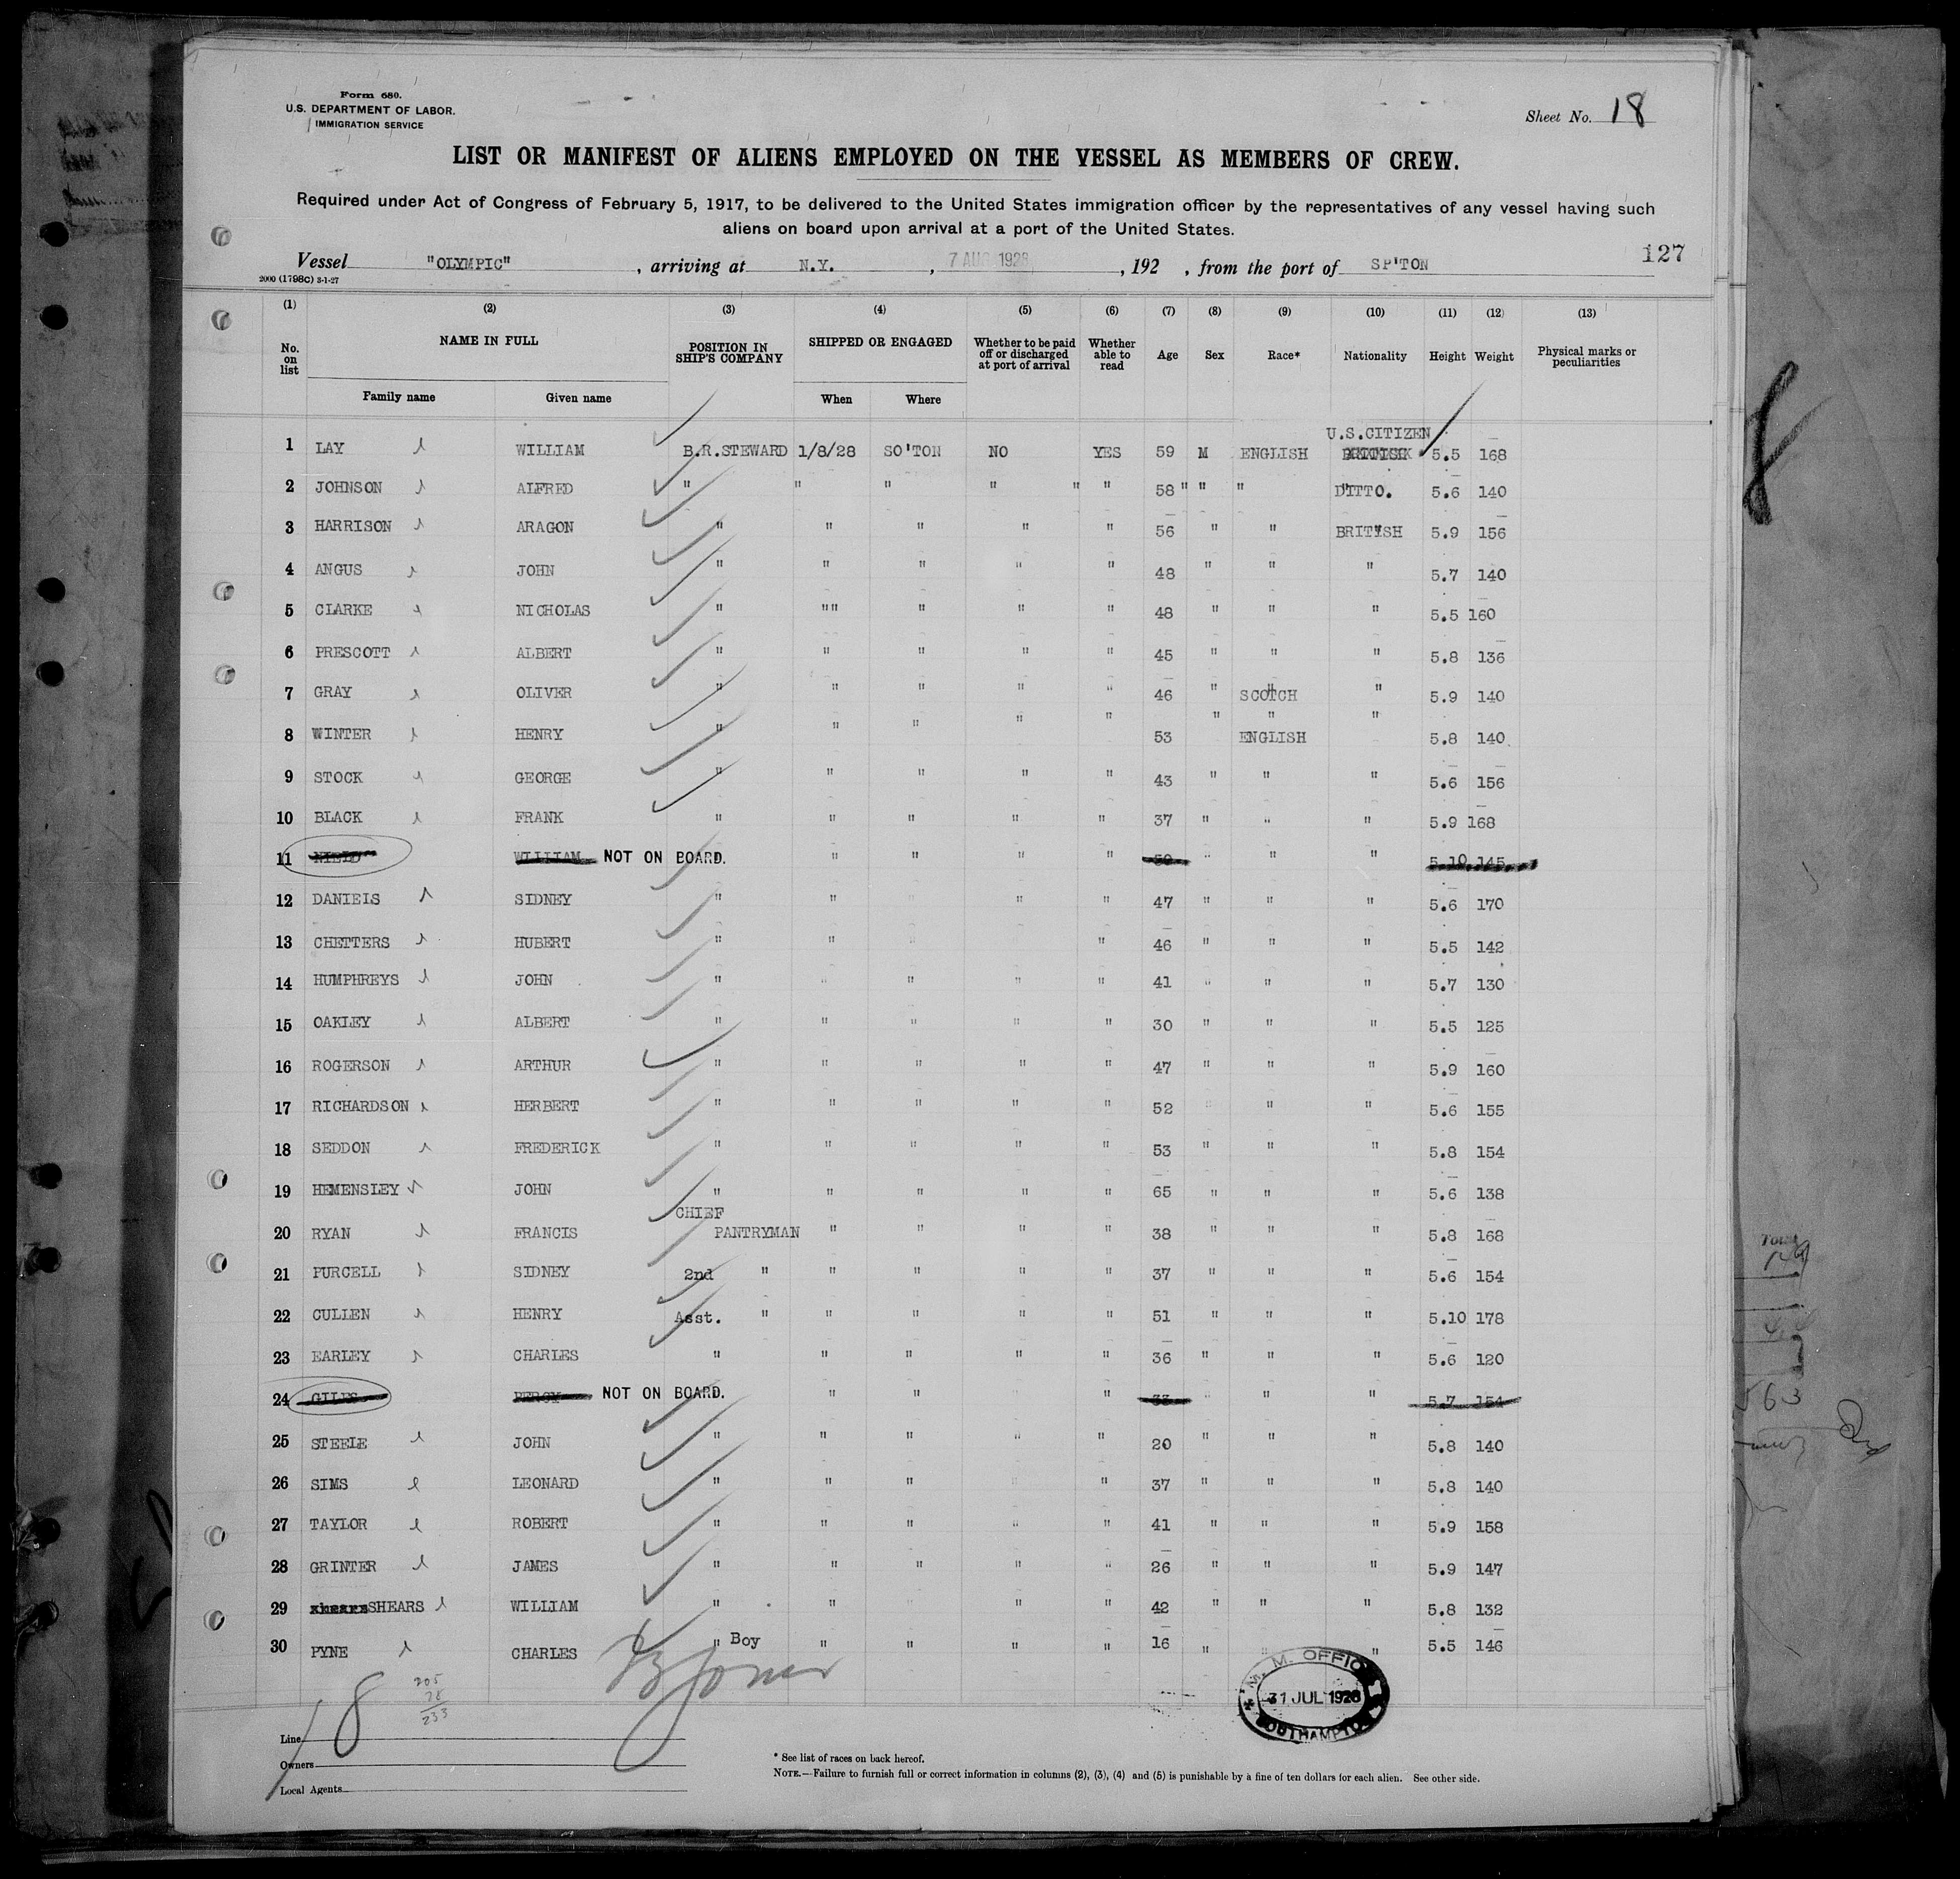 Form 680.
U.S. DEPARTMENT OF LABOR.
IMMIGRATION SERVICE
Sheet No. 18
LIST OR MANIFEST OF ALIENS EMPLOYED ON THE VESSEL AS MEMBERS OF CREW.
Required under Act of Congress of February 5, 1917, to be delivered to the United States immigration officer by the representatives of any vessel having such
aliens on board upon arrival at a port of the United States.
127
Vessel "OLYMPIC", arriving at N.Y., 7 AUG 1928, 192 , from the port of SP'TON
2000 (1798C) 3-1-27
(1) (2) (3) (4) (5) (6) (7) (8) (9) (10) (11) (12) (13)
No. on list NAME IN FULL POSITION IN SHIP'S COMPANY SHIPPED OR ENGAGED Whether to be paid off or discharged at port of arrival Whether able to read Age Sex Race* Nationality Height Weight Physical marks or peculiarities
Family name Given name When Where
U.S.CITIZEN
1 LAY WILLIAM B.R.STEWARD 1/8/28 SO'TON NO YES 59 M ENGLISH 5.5 168
2 JOHNSON ALFRED " " " " " " 58 " " " DITTO. 5.6 140
3 HARRISON ARAGON " " " " " 56 " " BRITISH 5.9 156
4 ANGUS JOHN " " " " " 48 " " " 5.7 140
5 CLARKE NICHOLAS " "" " " " 48 " " " 5.5 160
6 PRESCOTT ALBERT " " " " " 45 " " " 5.8 136
7 GRAY OLIVER " " " " " 46 " SCOTCH " 5.9 140
8 WINTER HENRY " " " " " 53 " " ENGLISH " 5.8 140
9 STOCK GEORGE " " " " " 43 " " " 5.6 156
10 BLACK FRANK " " " " " 37 " " " 5.9 168
11 WILLIAM NOT ON BOARD. " " " " " " " 5.10 145
12 DANIELS SIDNEY " " " " 47 " " " 5.6 170
13 CHETTERS HUBERT " " " 46 " " " 5.5 142
14 HUMPHREYS JOHN " " " " " 41 " " " 5.7 130
15 OAKLEY ALBERT " " " " " 30 " " " 5.5 125
16 ROGERSON ARTHUR " " " " " 47 " " " 5.9 160
17 RICHARDSON HERBERT " " " " " 52 " " " 5.6 155
18 SEDDON FREDERICK " " " " " 53 " " " 5.8 154
19 HEMENSLEY JOHN " " " " " 65 " " " 5.6 138
CHIEF
20 RYAN FRANCIS PANTRYMAN " " " " 38 " " " 5.8 168
21 PURCELL SIDNEY 2nd " " " " " 37 " " " 5.6 154
22 CULLEN HENRY Asst. " " " " " 51 " " " 5.10 178
23 EARLEY CHARLES " " " " " 36 " " " 5.6 120
24 GILES PERCY NOT ON BOARD. " " " 33 " " " 5.7 154
25 STEELE JOHN " " " " " 20 " " " 5.8 140
26 SIMS LEONARD " " " " " 37 " " " 5.8 140
27 TAYLOR ROBERT " " " " " 41 " " " 5.9 158
28 GRINTER JAMES " " " " " 26 " " " 5.9 147
29 SHEARS WILLIAM " " " " " 42 " " " 5.8 132
30 PYNE CHARLES " Boy " " " " 16 " " " 5.5 146
205
28
233
18
M. M. OFFICE
31 JUL 1928
SOUTHAMPTON
Line
Owners
Local Agents
* See list of races on back hereof.
NOTE.—Failure to furnish full or correct information in columns (2), (3), (4) and (5) is punishable by a fine of ten dollars for each alien. See other side.
Total
563